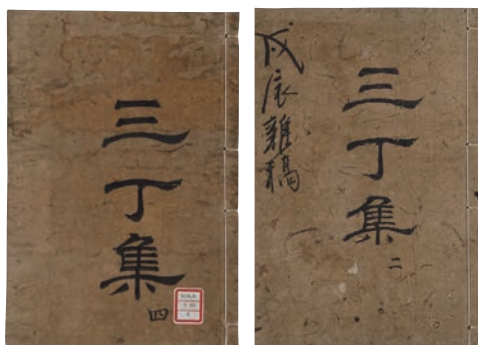 三丁集
四
戊辰雜稿
三丁集
二